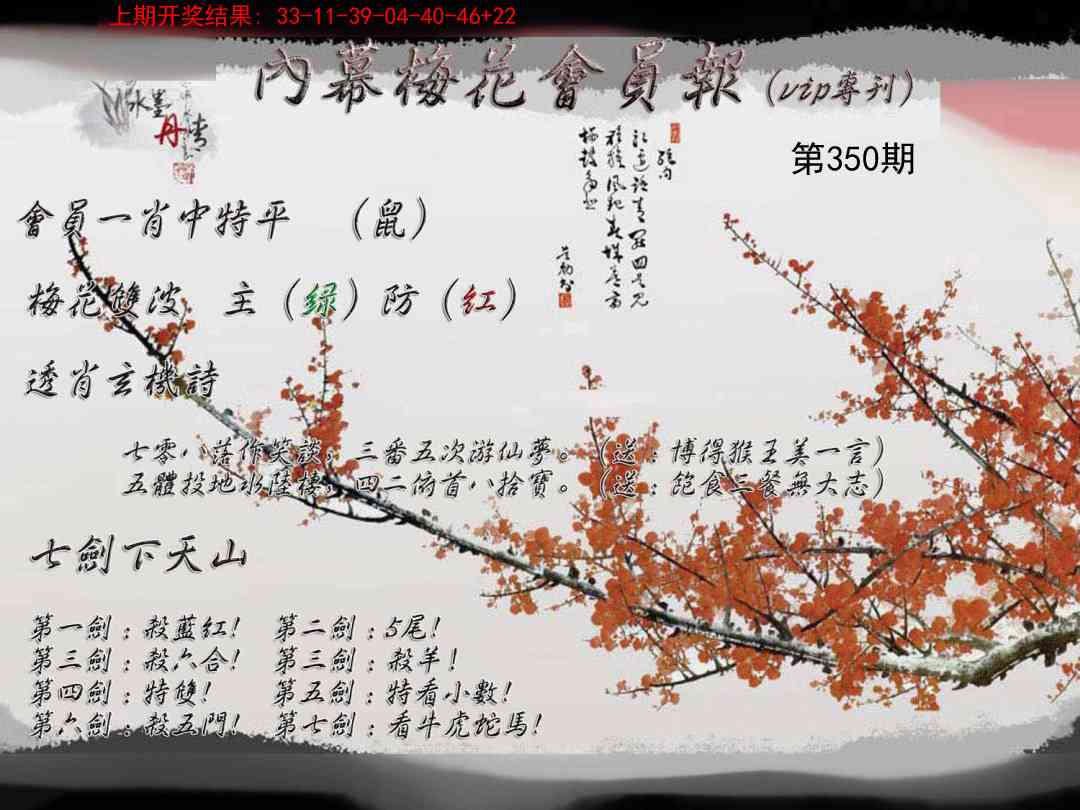 上期开奖结果: 33-11-39-04-40-46+22
內幕梅花會員報(vip專刊)
水墨
丹青
第350期
會員一肖中特平 （鼠）
梅花雙波 主（绿）防（红）
透肖玄機詩
七零八落作笑談，三番五次游仙夢。（送：博得猴王美一言）
五體投地水陸樓，四二俯首八拾寶。（送：飽食三餐無大志）
七劍下天山
第一劍：殺藍紅！ 第二劍：5尾！
第三劍：殺六合！ 第三劍：殺羊！
第四劍：特雙！ 第五劍：特看小數！
第六劍：殺五門！ 第七劍：看牛虎蛇馬！